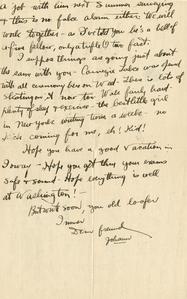 a job with him next summer surveying
+ this is no false alarm either. We will
work together - as I've told you he's a hell of
a fine fellow, only a trifle too fast.
I suppose things are going just about
the same with you - Carnegie Libes was filled
with all economy hero on Wed. There is lots of
Skating on it now too. Work fairly hard.
plenty of play + exercise - the best little girl
in New York writing twice a weeks - no
kids. coming for me, eh! Kid!
Hope you have a good vacation in
Iowa - Hope you got thru your exams
safe + sound - Hope everything is well
at Washington! -
But write soon you old loafer
I am
Dear friend
Johann